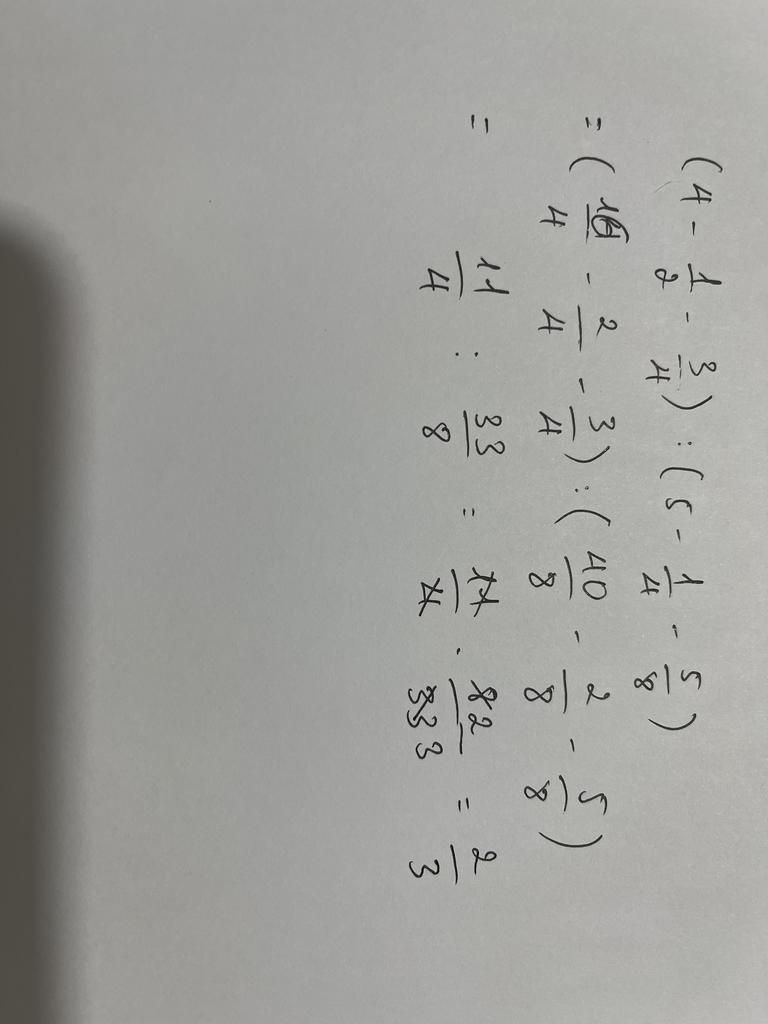 (4 - 1/2 - 3/4) : (5 - 1/4 - 5/8)
= (16/4 - 2/4 - 3/4) : (40/8 - 2/8 - 5/8)
= 11/4 : 33/8 = 11/4 · 8 2/33 3 = 2/3